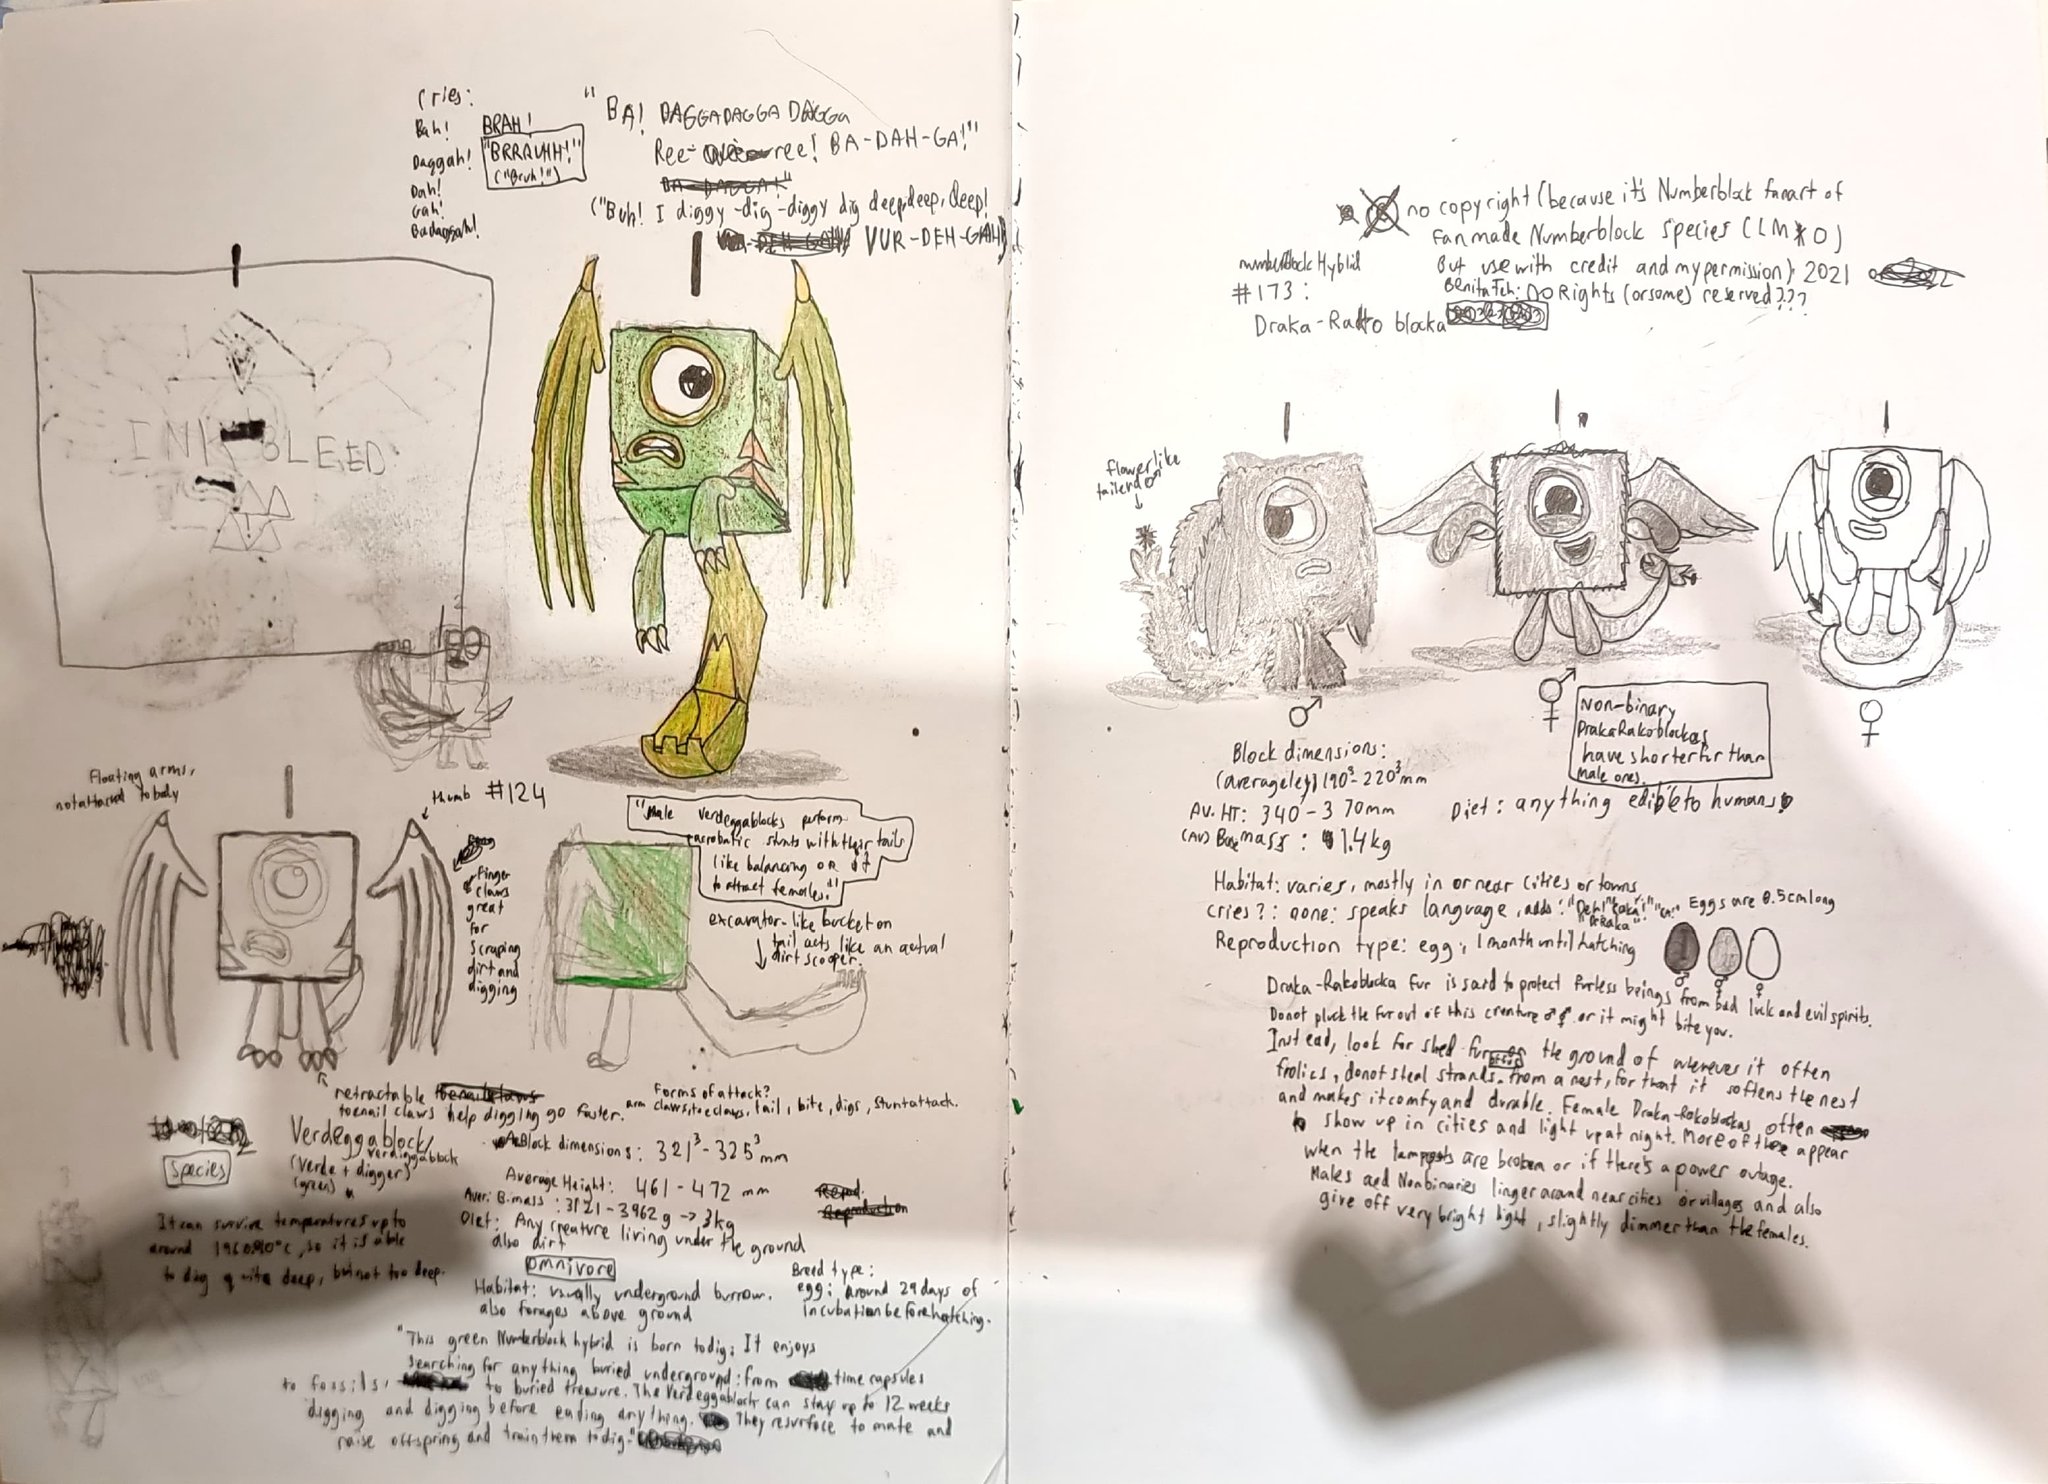 Cries:
Bah!
Daggah!
Dah!
Gah!
Badaggah!
BRAH!
"BRRAUHH!"
("Bruh!")
"BA! DAGGADAGGA DAGGA
Ree- ree! BA-DAH-GA!"
("Buh! I diggy-dig-diggy dig deep, deep, deep!
VUR-DEH-GAH!)
INK BLEED
Floating arms,
not attached to body
thumb
#124
Finger
claws
great
for
scraping
dirt and
digging
"Male Verdeggablocks perform
acrobatic stunts with their tails
like balancing on it
to attract females."
excavator-like bucket on
tail acts like an actual
dirt scooper.
retractable
toenail claws help digging go faster.
Forms of attack?
arm claws, toe claws, tail, bite, digs, stunt attack.
Species
Verdeggablock/
verdiggablock
(Verde + digger)
(green)
Block dimensions: 321³-325³mm
Average Height: 461-472 mm
Aver. B.mass: 3121-3962g → 3kg
Diet: Any creature living under the ground
also dirt
omnivore
Habitat: usually underground burrow.
also forages above ground
Breed type:
egg: around 29 days of
incubation before hatching.
It can survive temperatures up to
around °C, so it is able
to dig quite deep, but not too deep.
"This green Numberblock hybrid is born to dig: It enjoys
searching for anything buried underground: from time capsules
to fossils, to buried treasure. The Verdeggablock can stay up to 12 weeks
digging and digging before eating anything. They resurface to mate and
raise offspring and train them to dig."
no copyright (because it's Numberblock fanart of
fanmade Numberblock species (LM O)
But use with credit and my permission) 2021
Benita Feh: NO Rights (or some) reserved???
numberblock Hybrid
#173:
Draka-Rako blocka
flowerlike
tail end
♂
⚥
♀
Non-binary
DrakaRakoblockas
have shorter fur than
male ones.
Block dimensions:
(averagely) 190³-220³mm
AV. HT: 340-370mm
(AV) mass: 1.4kg
Diet: anything edible to humans
Habitat: varies, mostly in or near cities or towns
cries?: none: speaks language, adds: "Deh!" "Raka!" "Ca!"
"DRRaka"
Eggs are 8.5cm long
Reproduction type: egg: 1 month until hatching
♂ ⚥ ♀
Draka-Rakoblocka fur is said to protect furless beings from bad luck and evil spirits.
Do not pluck the fur out of this creature ♂ ⚥ or it might bite you.
Instead, look for shed fur on the ground of wherever it often
frolics, do not steal strands from a nest, for that it softens the nest
and makes it comfy and durable. Female Draka-Rakoblockas often
show up in cities and light up at night. More of these appear
when the lampposts are broken or if there's a power outage.
Males and Nonbinaries linger around near cities or villages and also
give off very bright light, slightly dimmer than the females.